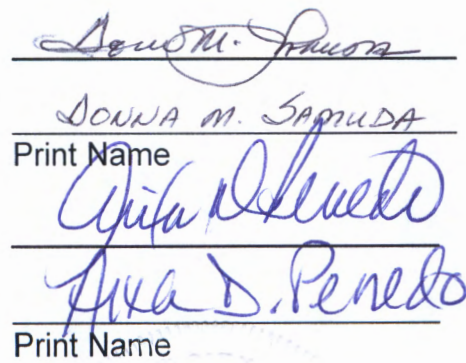 Donna M. Samuda
DONNA M. SAMUDA
Print Name
D. Penedo
D. Penedo
Print Name